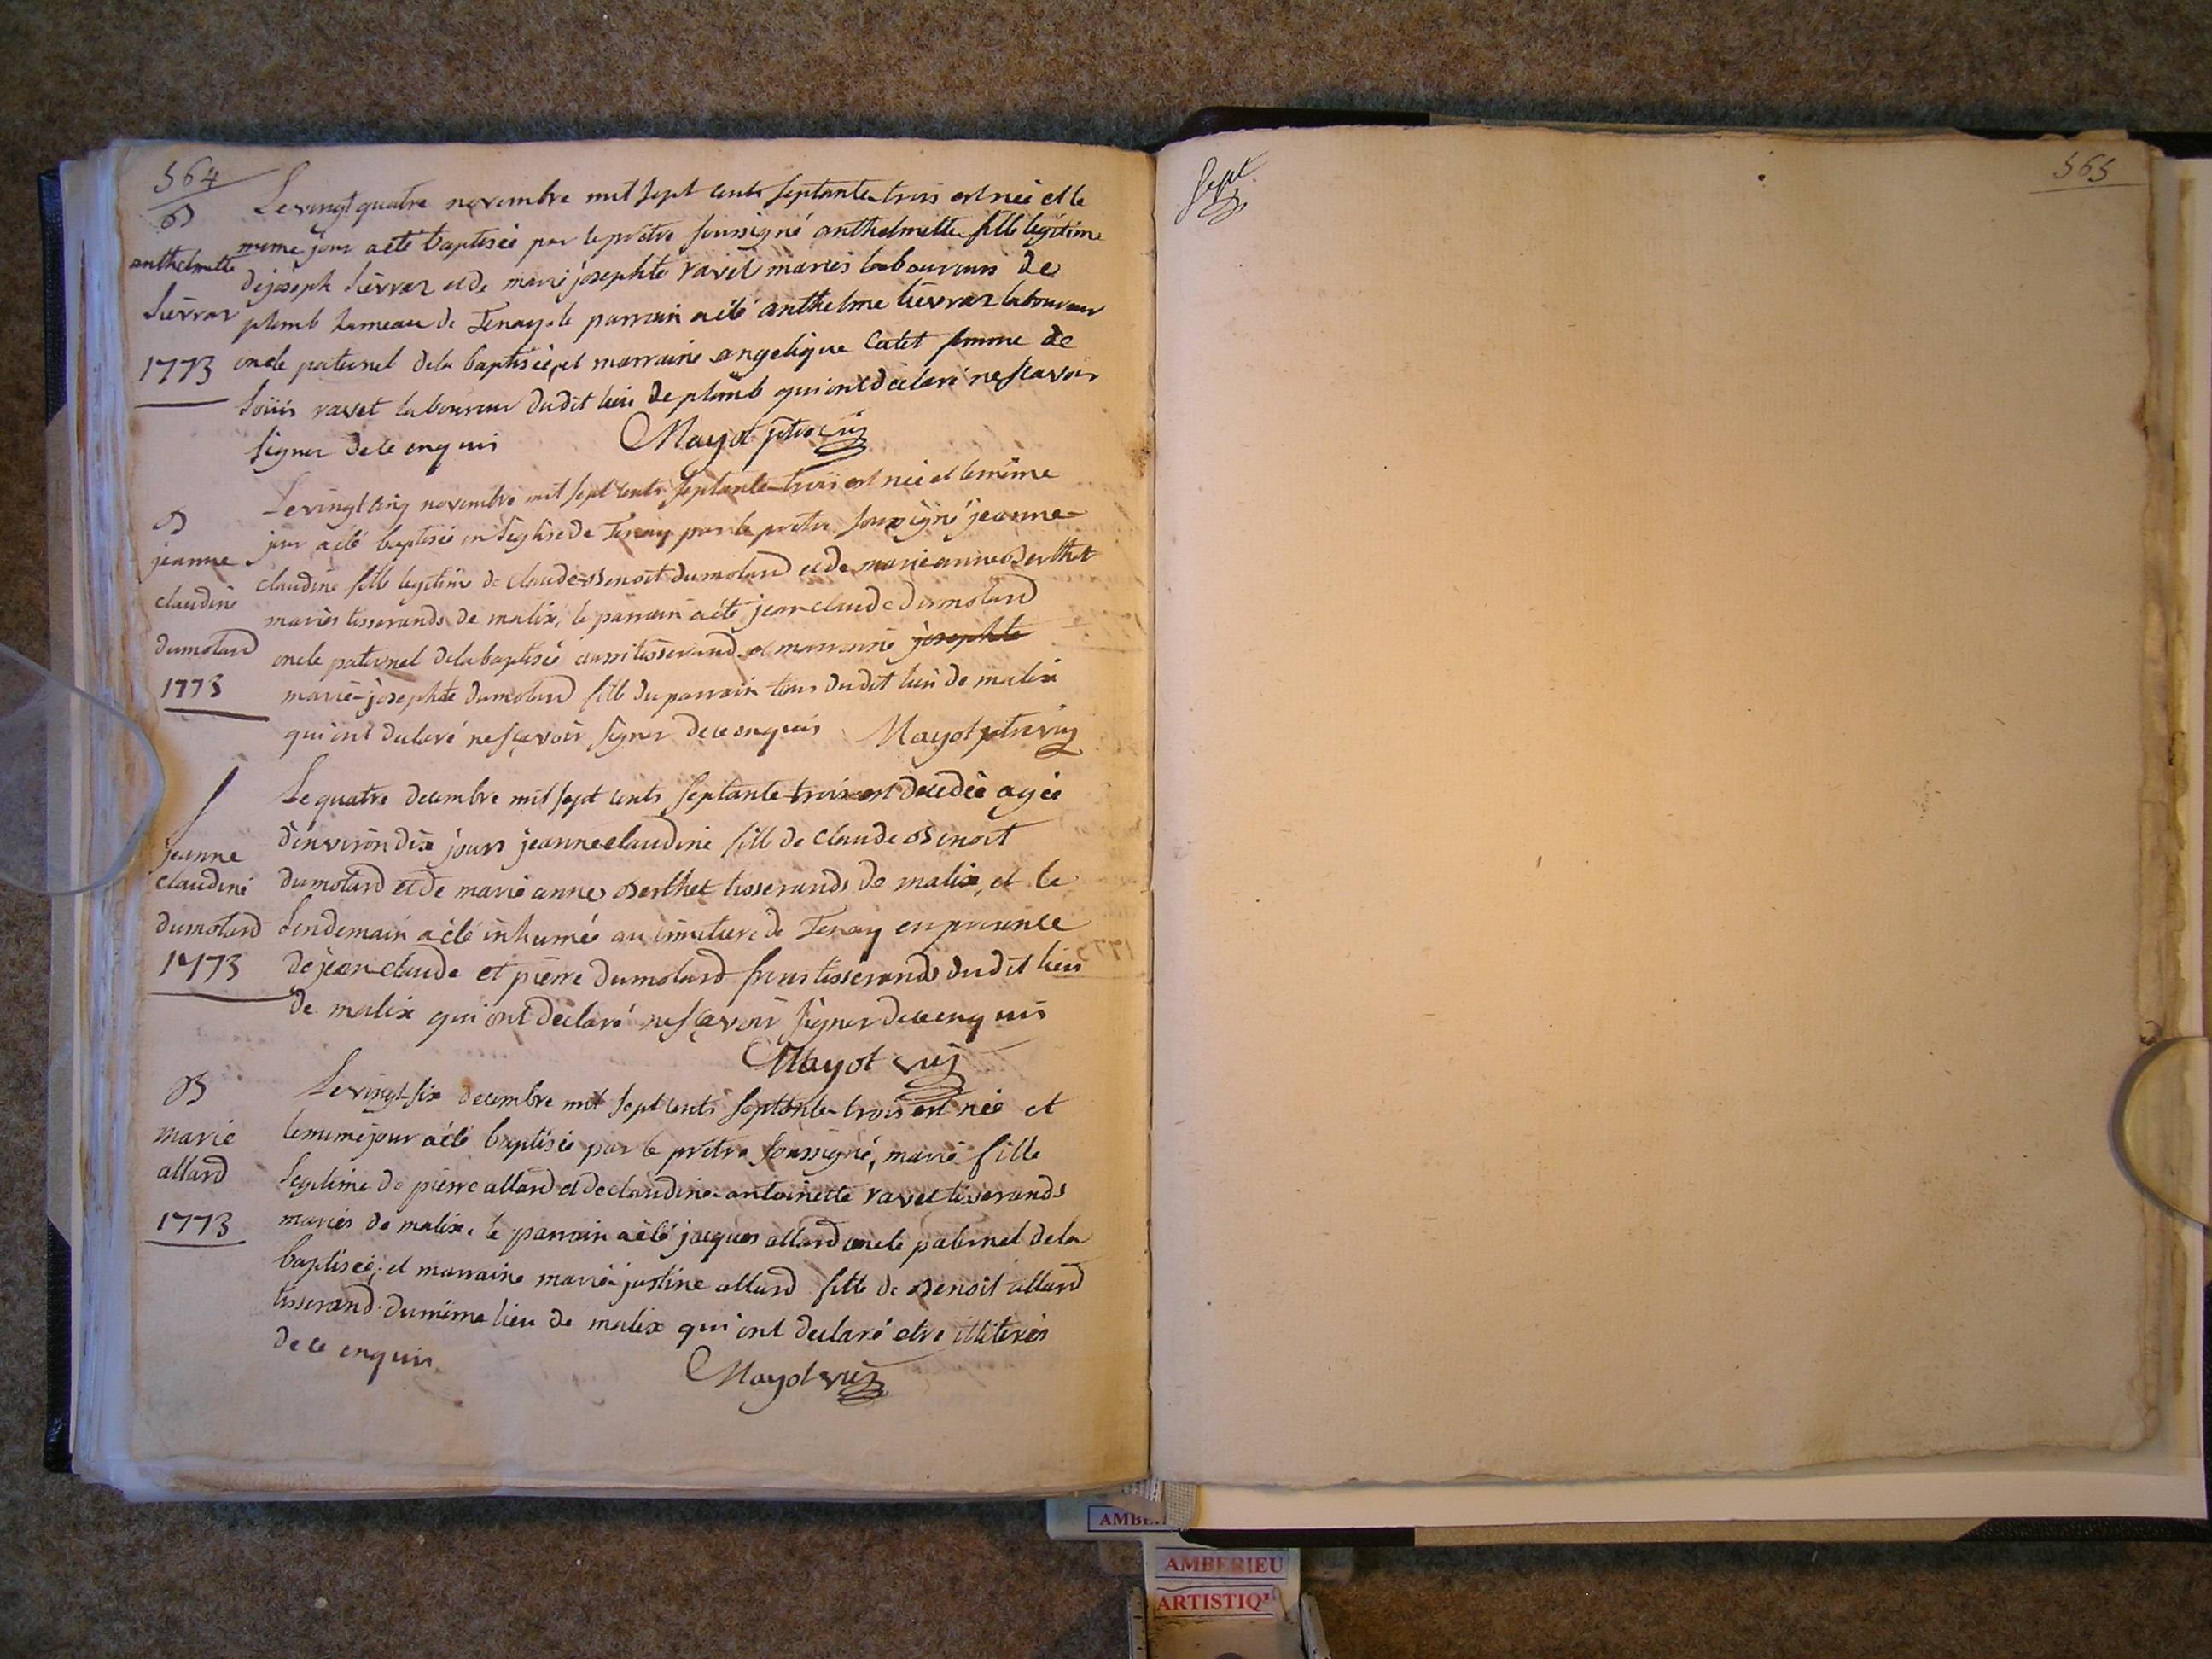 564
B
anthelmette
Lièvraz
1773
Le vingt quatre novembre mil sept cents septante-trois est née et le
meme jour a été baptisée par le prêtre soussigné anthelmette fille légitime
de joseph Lièvraz et de marie josephte ravet mariés laboureurs de
plomb hameau de Tenay. le parrain a été anthelme lièvraz laboureur
oncle paternel de la baptisée, et marraine angelique Catet femme de
Loüis ravet laboureur dudit lieu de plomb qui ont déclaré ne sçavoir
signer de ce enquis Mayot ptre vic
B
jeanne
claudine
dumolard
1773
Le vingt cinq novembre mil sept cents septante-trois est née et le même
jour a été baptisée en l'église de Tenay par le prêtre soussigné jeanne-
claudine fille legitime de claude-Benoit dumolard et de marie anne Berthet
mariés tisserands de malix, le parrain a été jean claude dumolard
oncle paternel de la baptisée aussi tisserand et marraine josephte
marie-josephte dumolard fille du parrain tous dudit lieu de malix
qui ont declaré ne sçavoir signer de ce enquis Mayot ptre vic
S
jeanne
claudine
dumolard
1773
Le quatre decembre mil sept cents septante-trois est decedée agée
d'environ dix jours jeanne claudine fille de claude Benoit
dumolard et de marie anne Berthet tisserands de malix, et le
Lendemain a été inhumée au cimetiere de Tenay en presence
de jean-claude et pierre dumolard freres tisserands dudit lieu
de malix qui ont déclaré ne sçavoir signer de ce enquis
Mayot vic
B
marie
allard
1773
Le vingt-six decembre mil sept cents septante-trois est née et
le meme jour a été baptisée par le prêtre soussigné, marie fille
legitime de pierre allard et de claudine-antoinette ravet tisserands
mariés de malix. le parrain a été jacques allard oncle paternel de la
baptisée, et marraine marie-justine allard fille de Benoit allard
tisserand du même lieu de malix qui ont declaré etre illiterés
de ce enquis
Mayot vic
Sept
565
AMBERIEU
ARTISTIQ